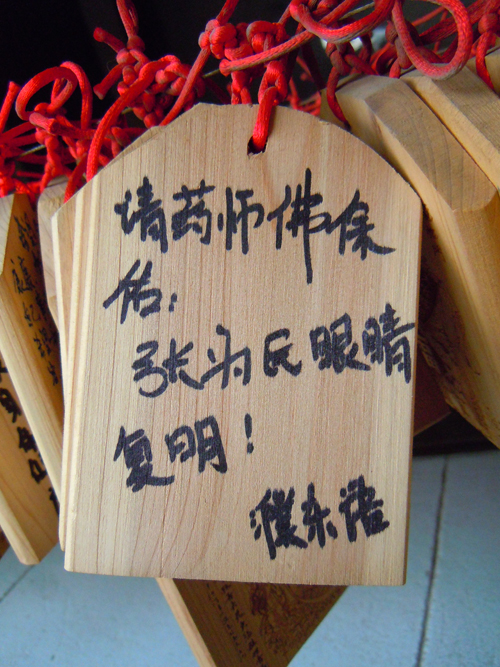 请药师佛保
佑:
张为民眼睛
复明!
东语